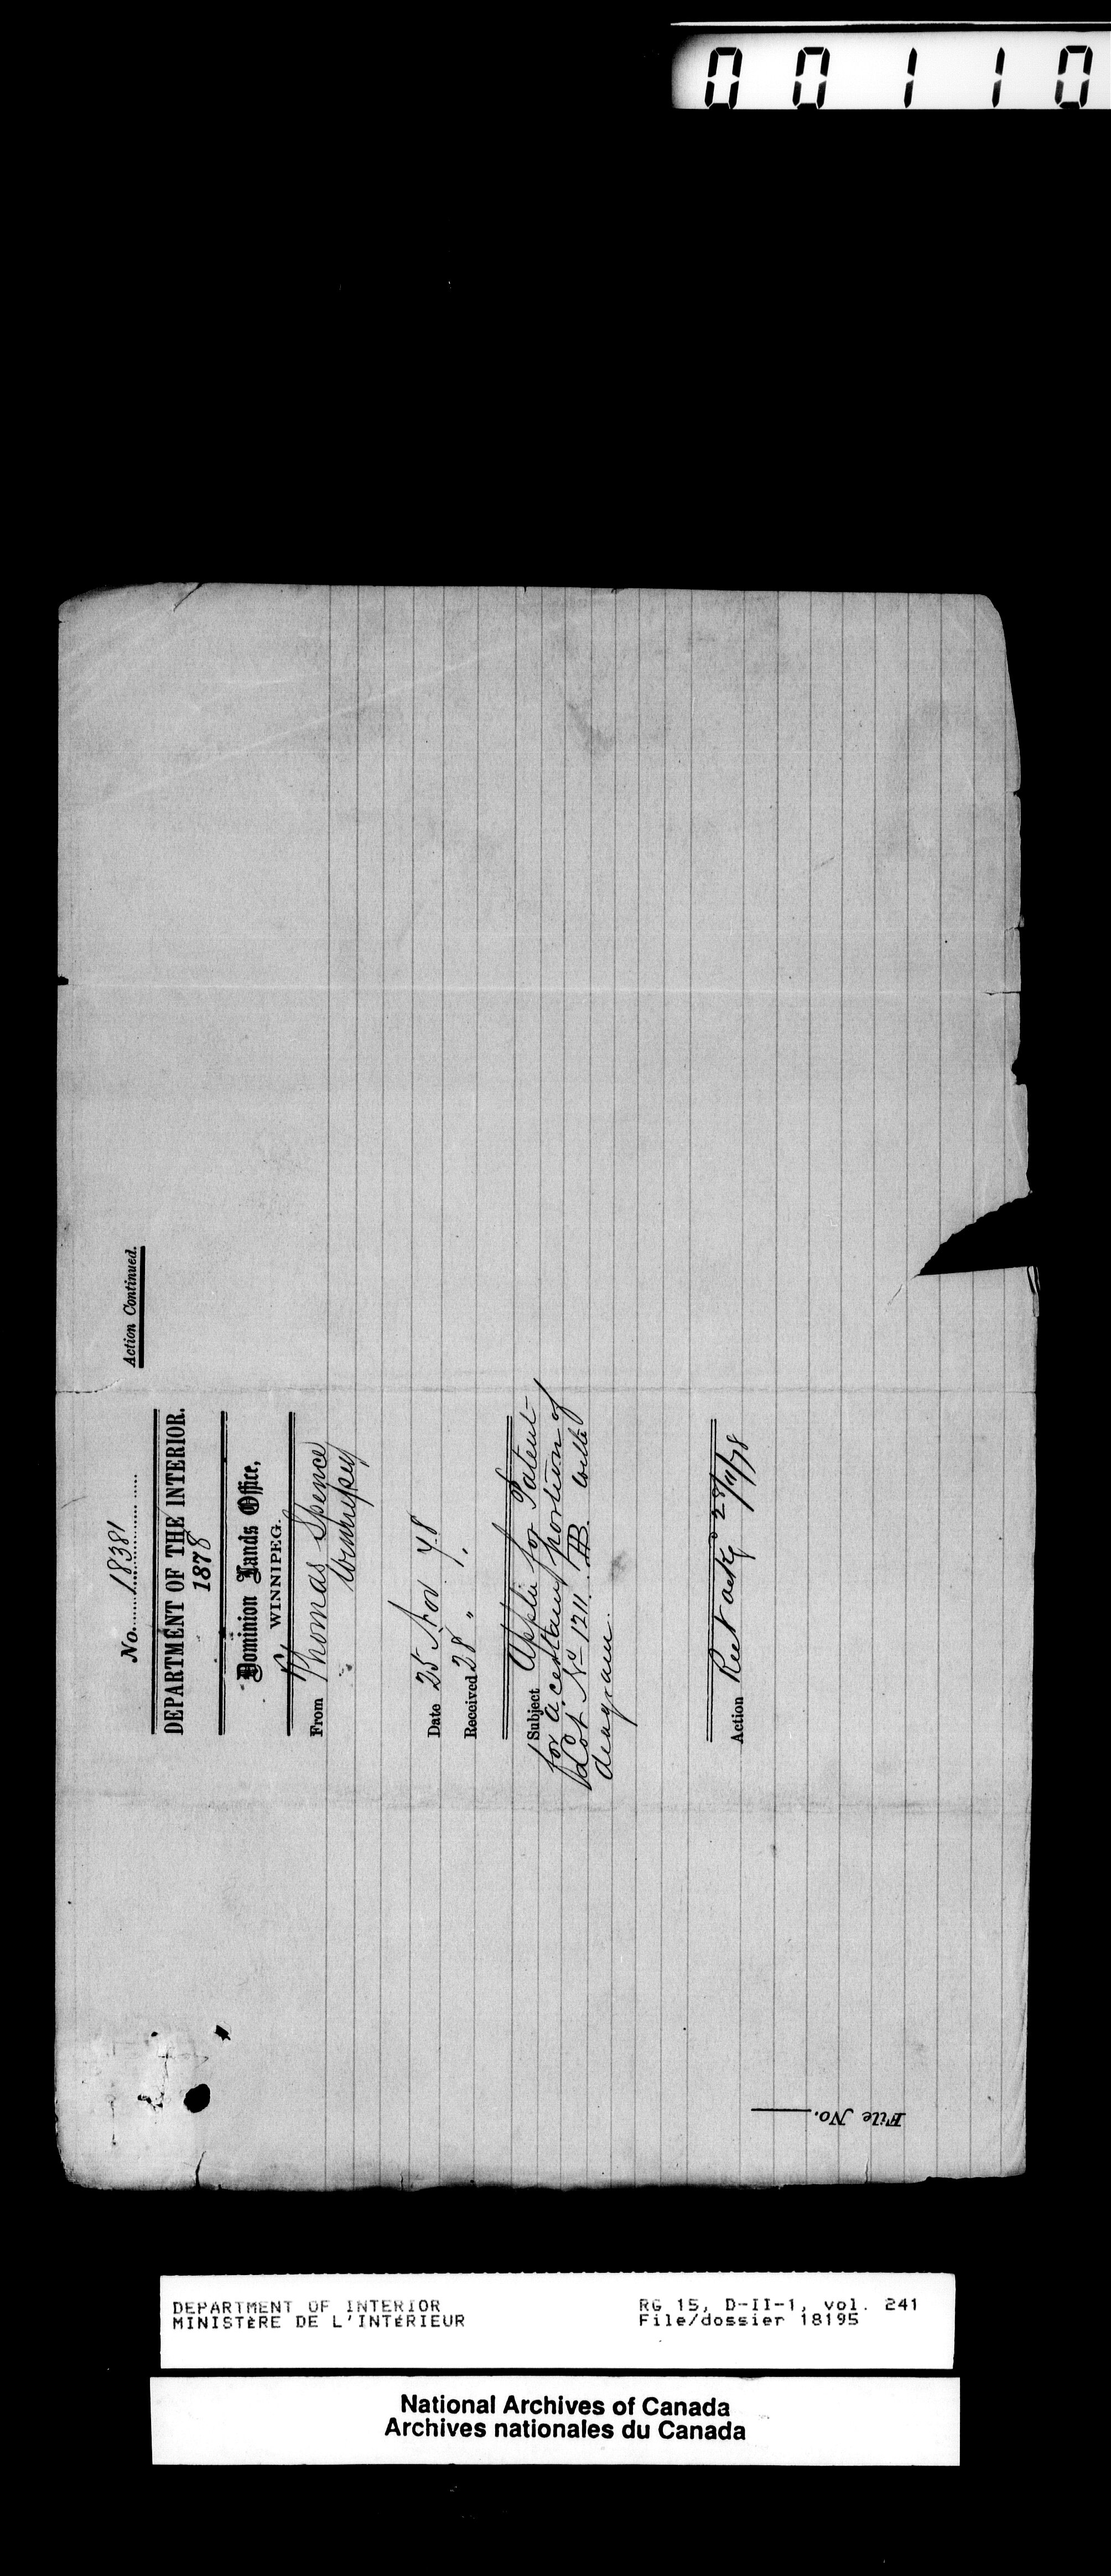 00110
Action Continued.
No. 18381
DEPARTMENT OF THE INTERIOR.
1878
Dominion Lands Office,
WINNIPEG.
From Thomas Spence
Winnipeg
Date 25 Nov 78
Received 28 " "
Subject Applie for Patent
for a certain portion of
Lot No 1211. HB. with
diagram.
Action Rect ackd 28/11/78
File No.
DEPARTMENT OF INTERIOR
MINISTÈRE DE L'INTÉRIEUR
RG 15, D-II-1, vol. 241
File/dossier 18195
National Archives of Canada
Archives nationales du Canada